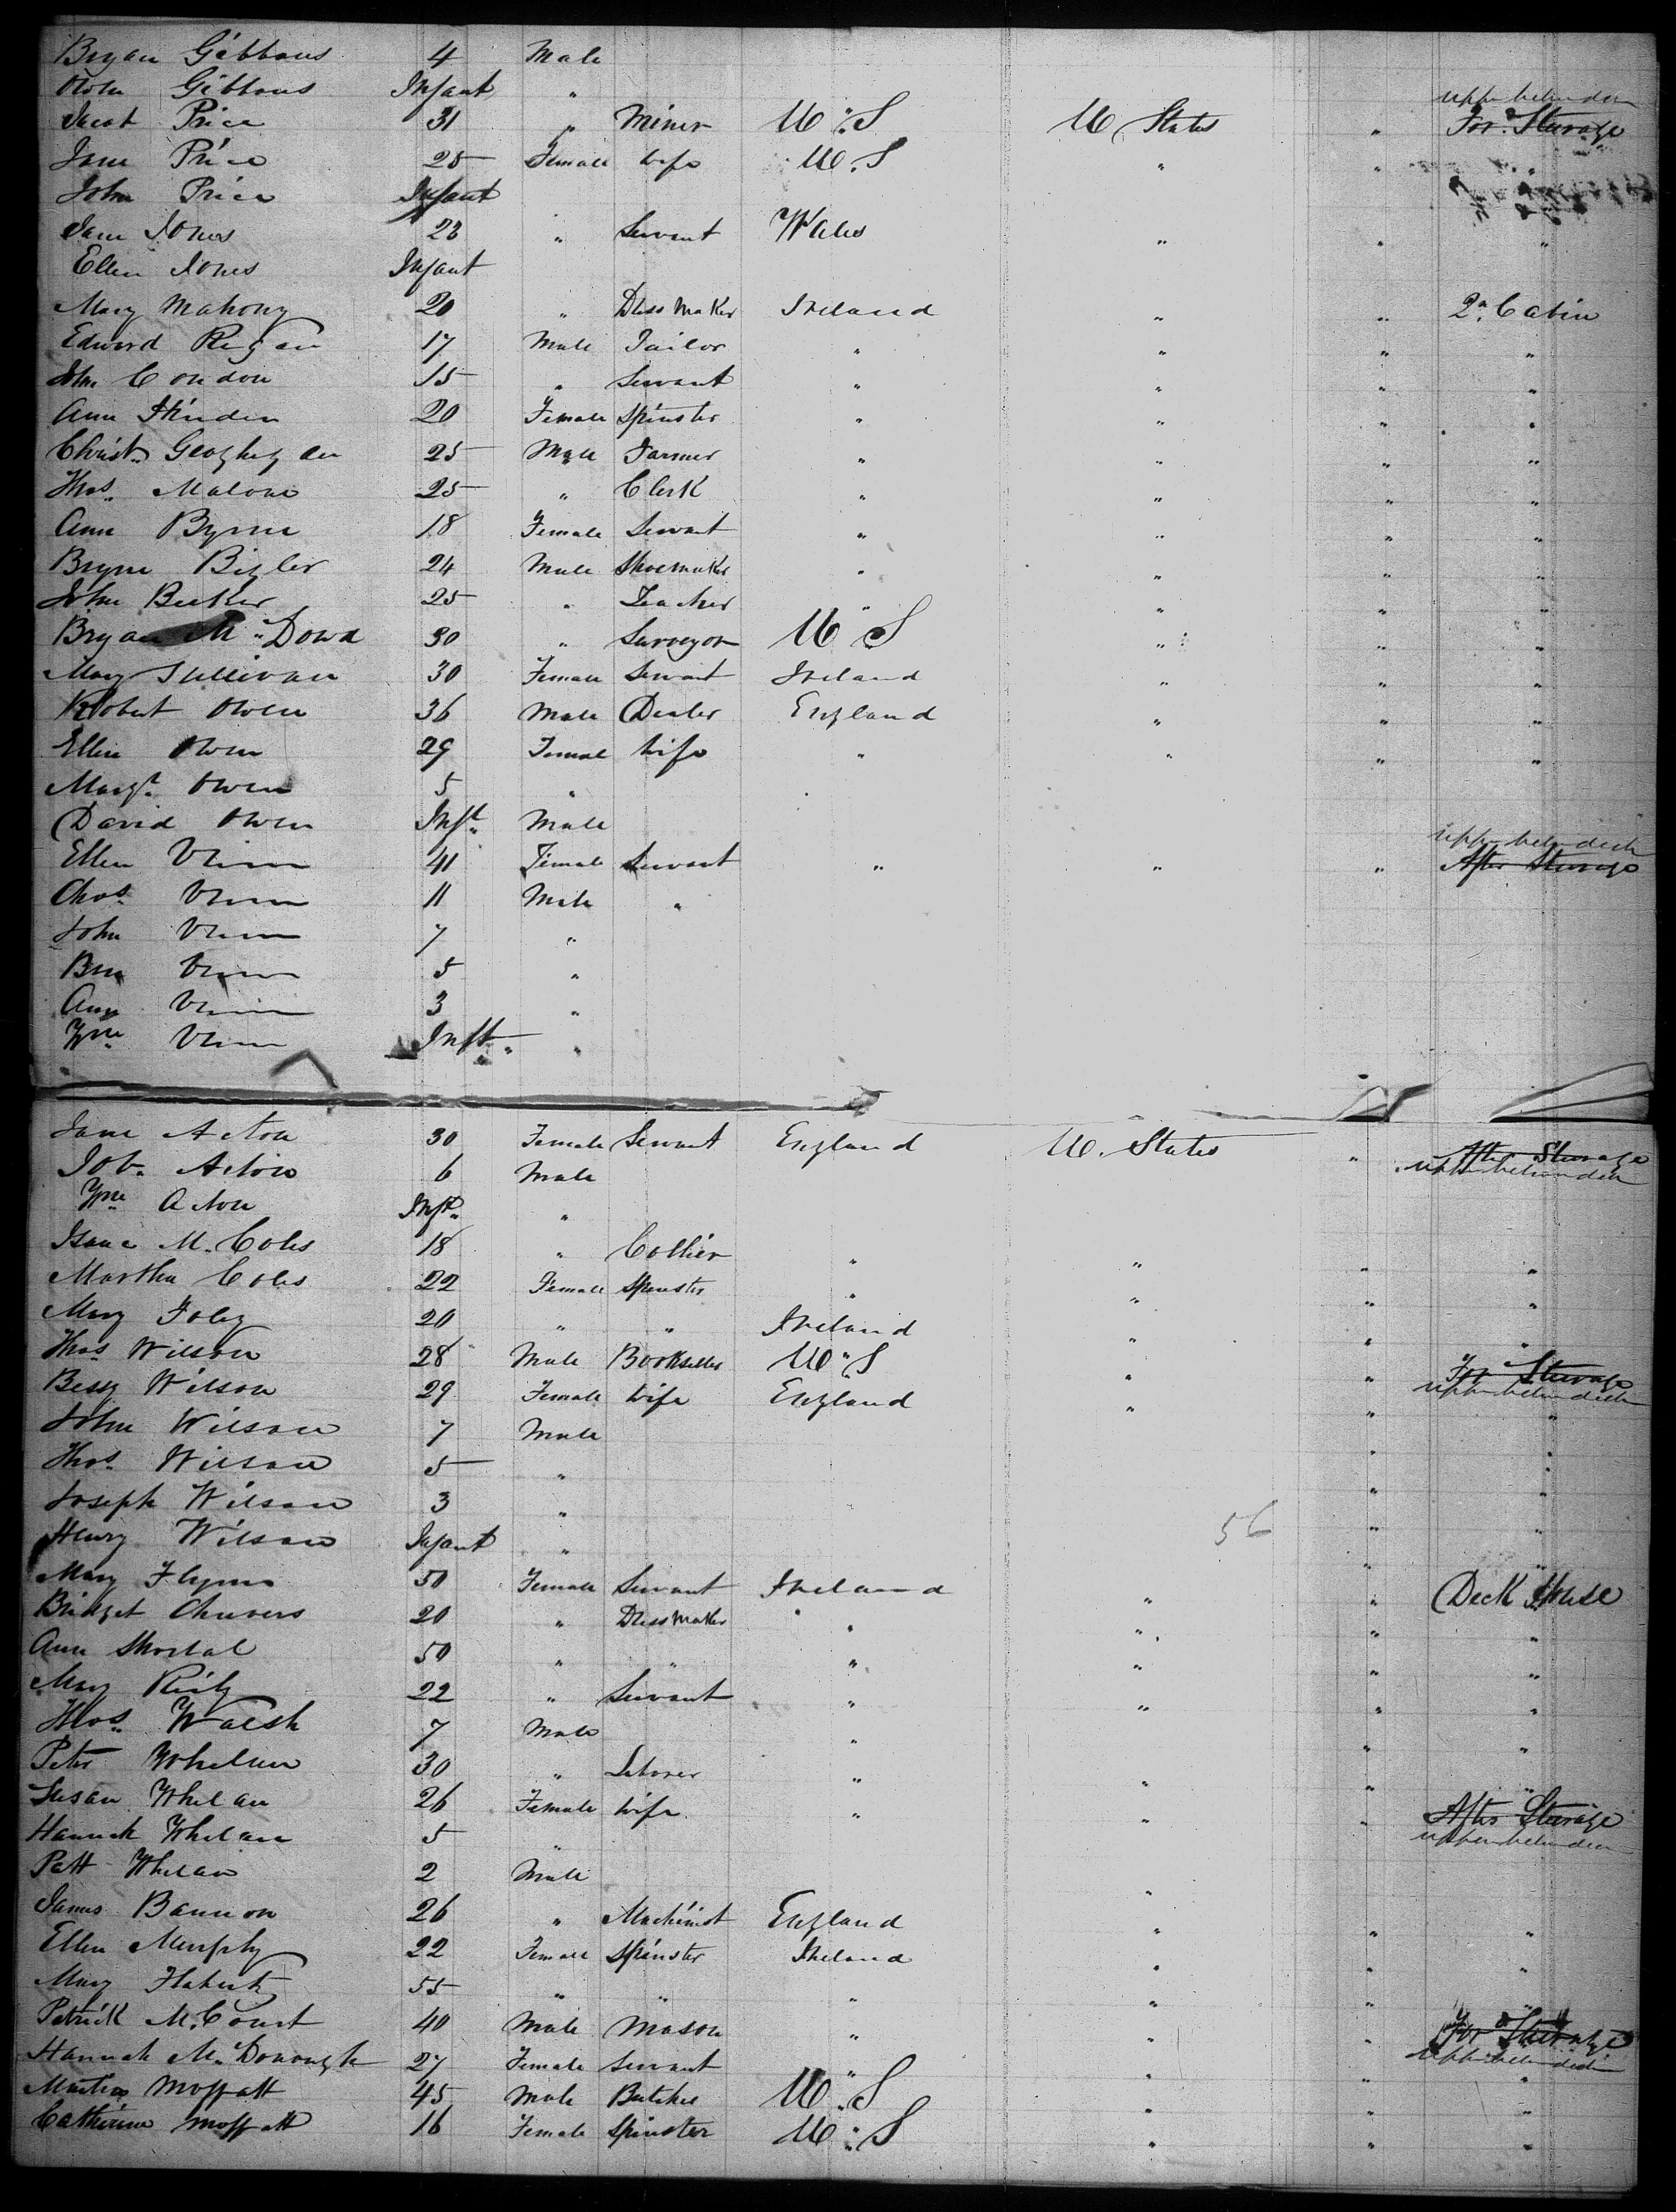 Bryan Gibbons 4 Male
Owen Gibbons Infant "
upper between deck
Jacob Price 31 " Miner U.S U States " For. Steerage
Jane Price 25 Female Wife U.S " " "
John Price Infant
Jane Jones 23 " Servant Wales " " "
Ellen Jones Infant
Mary Mahony 20 " Dress Maker Ireland " " 2d. Cabin
Edward Regan 17 Male Tailor " " " "
John Condon 15 " Servant " " " "
Ann 20 Female Spinster " " " "
Christ. Geoghegan 25 Male Farmer " " " "
Thos. Malone 25 " Clerk " " " "
Ann Byrne 18 Female Servant " " " "
Bryne Bigler 24 Male Shoemaker " " " "
John Becker 25 " Teacher " " " "
Bryan McDowd 30 " Surveyor U S " " "
Mary Sullivan 30 Female Servant Ireland " " "
Robert Owen 36 Male Dealer England " " "
Ellen Owen 29 Female Wife " " " "
Margt. Owen 5 "
David Owen Inft. Male
upper between deck
Ellen 41 Female Servant " " " After Steerage
Chas. 11 Male "
John 7 "
Ben 5 "
3 "
Wm. Inft. "
Jane Acton 30 Female Servant England U. States " After Steerage
upper between deck
Job. Acton 6 Male
Wm. Acton Inft. "
Isaac M. Coles 18 " Collier " " " "
Martha Coles 22 Female Spinster " " " "
Mary Foley 20 " " Ireland " " "
Thos. Wilson 28 Male Bookseller U.S " " For Steerage
upper between deck
Bessy Wilson 29 Female Wife England " " "
John Wilson 7 Male " "
Thos. Wilson 5 " " "
Joseph Wilson 3 " " "
Henry Wilson Infant " " "
56
Mary Flynn 50 Female Servant Ireland " " Deck House
Bridget Chuvers 20 " Dress Maker " " " "
Ann Shortal 50 " " " " " "
Mary 22 " Servant " " " "
Thos. Walsh 7 Male " " "
Peter Whelan 30 " Laborer " " " "
Susan Whelan 26 Female Wife " " " After Steerage
upper between deck
Hannah Whelan 5 "
Patt Whelan 2 Male "
James Bannon 26 " Machinist England " " "
Ellen Murphy 22 Female Spinster Ireland " " "
Mary Flaherty 55 " " " " " "
Patrick McCourt 40 Male Mason " " " For Steerage
upper between deck
Hannah McDonough 27 Female Servant " " " "
Martin Moffatt 45 Male Butcher U.S " " "
Catherine Moffatt 16 Female Spinster U.S " " "